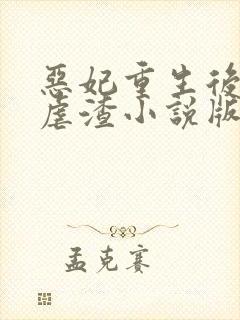 惡妃重生後
虐渣小說版
孟克賽